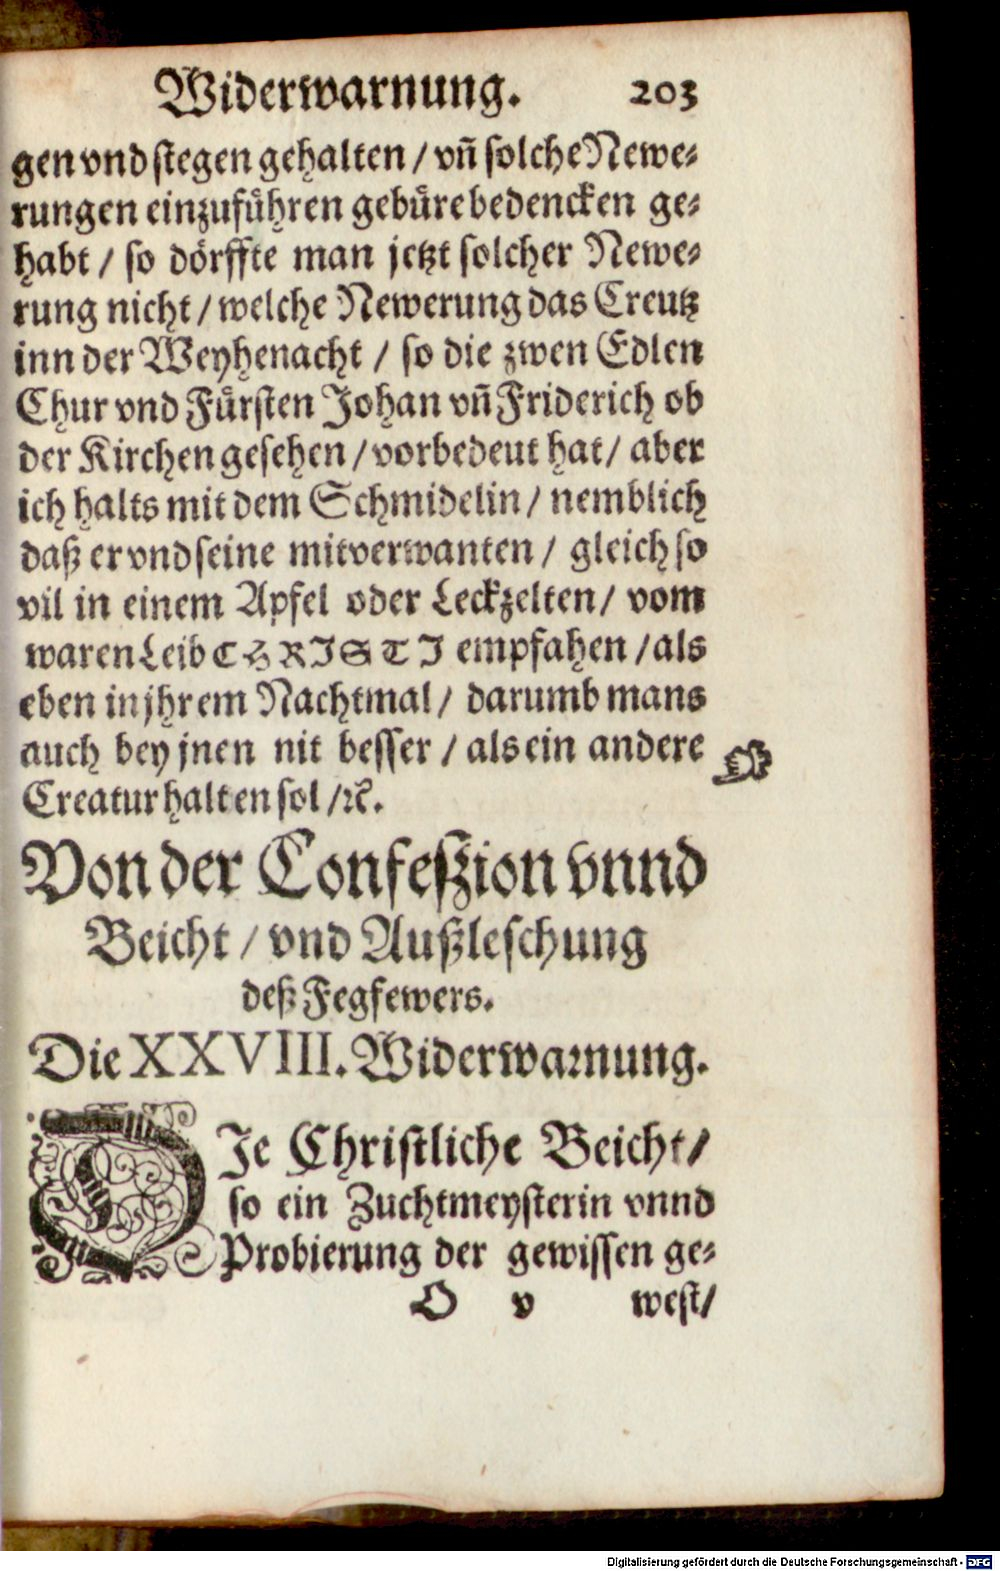 Widerwarnung. 203
gen vnd stegen gehalten / vñ solche Newe⸗
rungen einzufuͤhren gebuͤre bedencken ge⸗
habt / so doͤrffte man jetzt solcher Newe⸗
rung nicht / welche Newerung das Creutz
inn der Weyhenacht / so die zwen Edlen
Chur vnd Fuͤrsten Johan vñ Friderich ob
der Kirchen gesehen / vorbedeut hat / aber
ich halts mit dem Schmidelin / nemblich
daß er vnd seine mitverwanten / gleich so
vil in einem Apfel oder Leckzelten / vom
waren Leib CHRISTI empfahen / als
eben in jhrem Nachtmal / darumb mans
auch bey jnen nit besser / als ein andere
Creatur halten sol / ꝛc.
Von der Confeszion vnnd
Beicht / vnd Außleschung
deß Fegfewers.
Die XXVIII. Widerwarnung.
DIe Christliche Beicht /
so ein Zuchtmeysterin vnnd
Probierung der gewissen ge⸗
O v west /
Digitalisierung gefördert durch die Deutsche Forschungsgemeinschaft - DFG